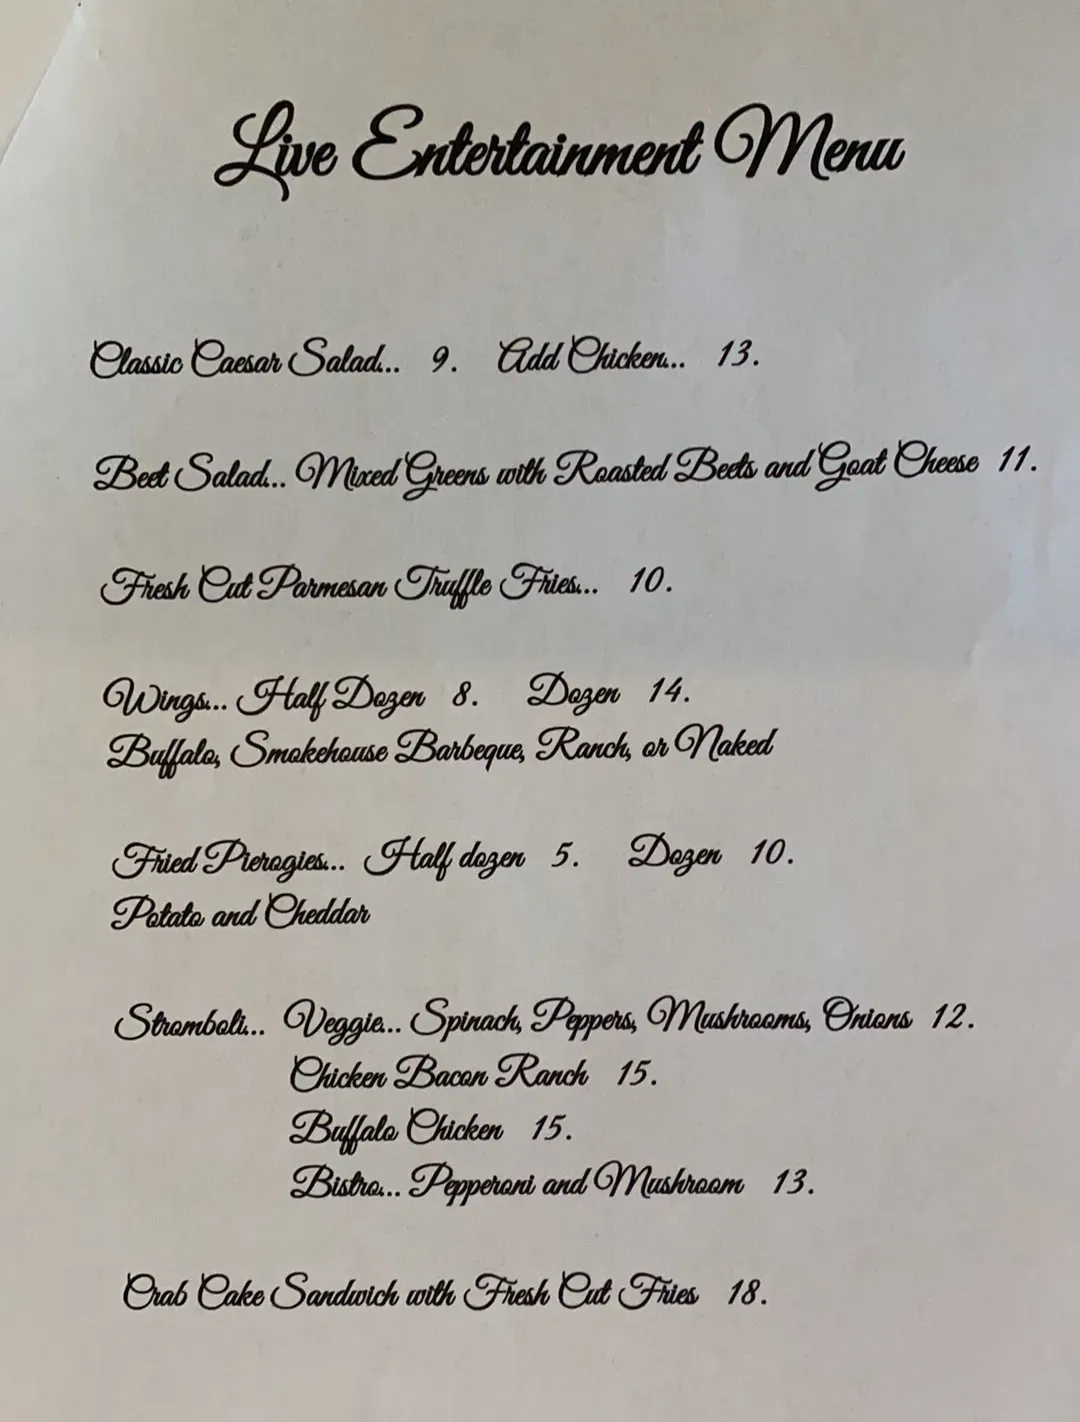 Live Entertainment Menu
Classic Caesar Salad... 9. Add Chicken... 13.
Beet Salad... Mixed Greens with Roasted Beets and Goat Cheese 11.
Fresh Cut Parmesan Truffle Fries... 10.
Wings... Half Dozen 8. Dozen 14.
Buffalo, Smokehouse Barbeque, Ranch, or Naked
Fried Pierogies... Half dozen 5. Dozen 10.
Potato and Cheddar
Stromboli... Veggie... Spinach, Peppers, Mushrooms, Onions 12.
Chicken Bacon Ranch 15.
Buffalo Chicken 15.
Bistro... Pepperoni and Mushroom 13.
Crab Cake Sandwich with Fresh Cut Fries 18.